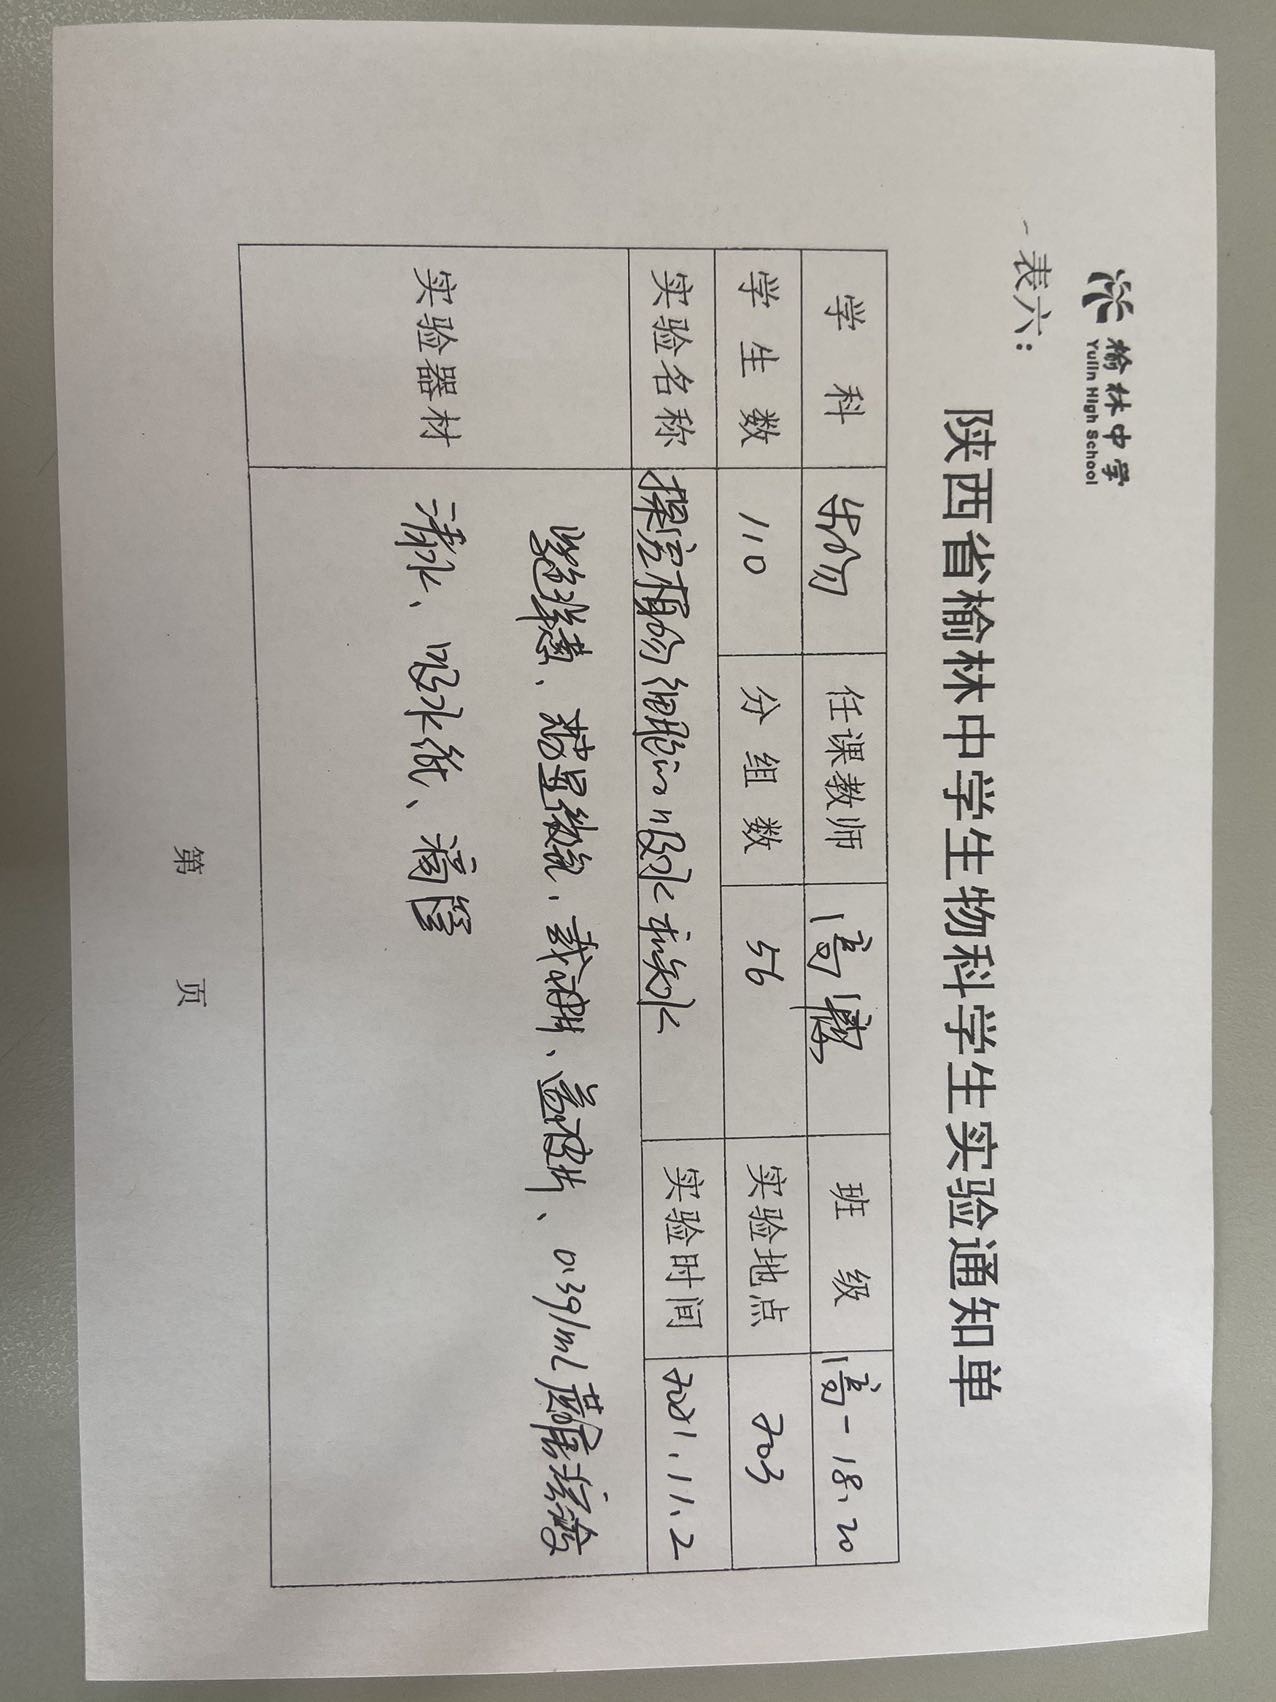 榆林中学
Yulin High School
表六：
陕西省榆林中学生物科学生实验通知单
学科 生物 任课教师 高 班级 高一18、20
学生数 110 分组数 56 实验地点 203
实验名称 探究植物细胞的吸水和失水 实验时间 2021.11.2
实验器材 紫洋葱、显微镜、载玻片、盖玻片、0.3g/ml蔗糖溶液
清水、吸水纸、滴管
第 页